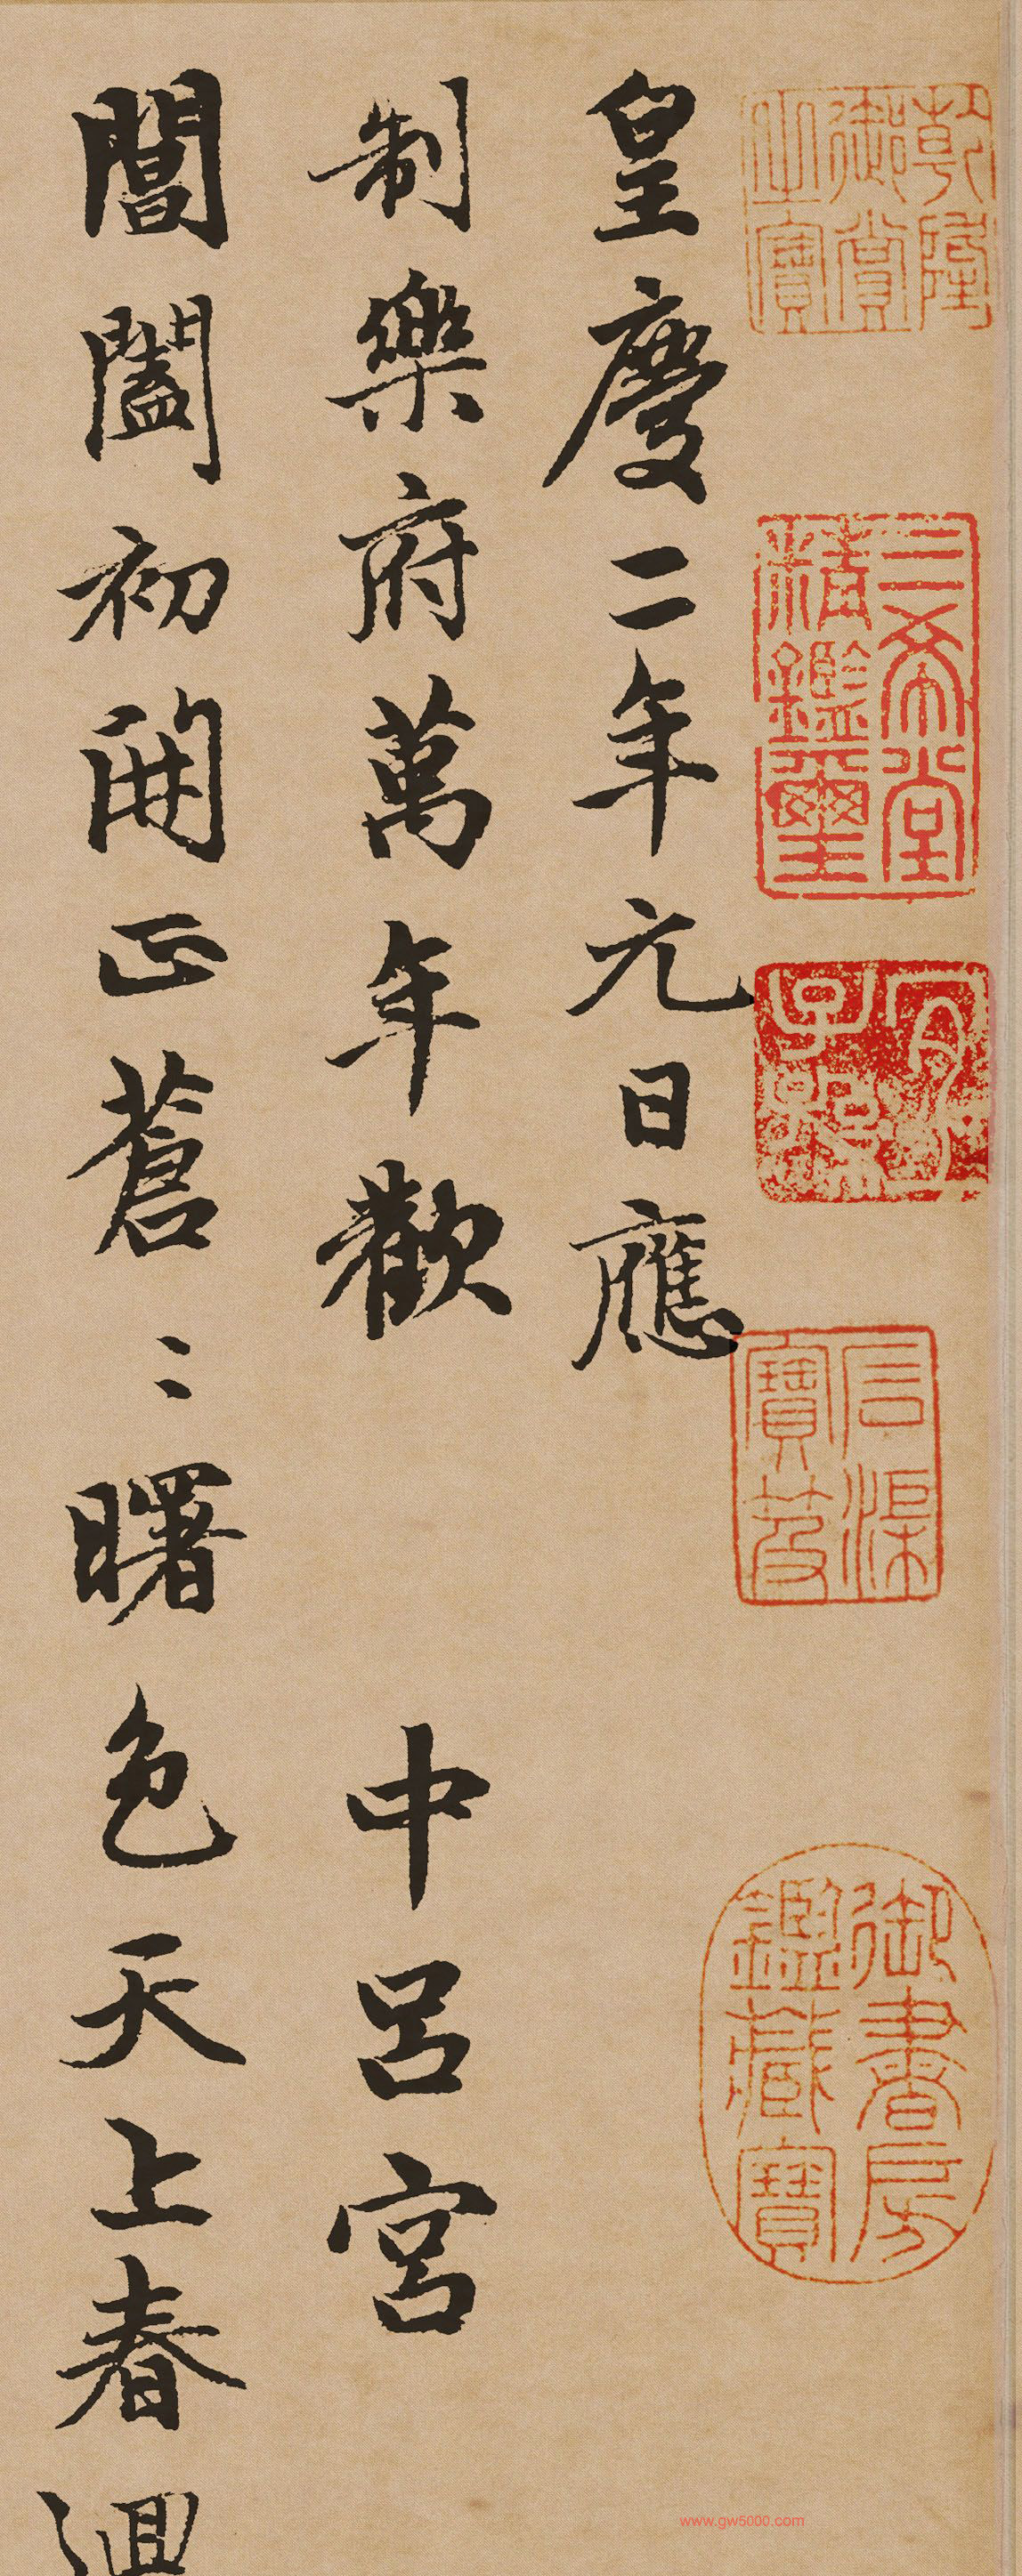 乾隆御賞之寶
三希堂精鑑璽
宜子孫
信渠寶笈
御書房鑑藏寶
皇慶二年元日應
制樂府萬年歡 中呂宮
閶闔初開正蒼〻曙色天上春迴
www.gw5000.com